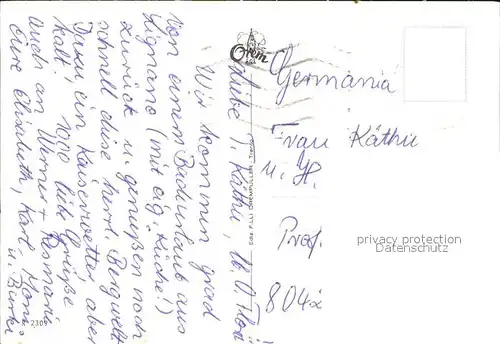 Liebe T. Käthi, lb. O Flori
Wir kommen grad
von einem Badeurlaub aus
Lignano (mit eig. Küche!)
zurück u. genießen noch
schnell diese herrl. Bergwelt
Dazu ein Kaiserwetter, aber
kalt. 1000 liebe Grüße
auch an Werner + Rosmarie
Eure Elisabeth, Karl, Moni
u. Burki
K 2309
Germania
Frau Käthi
u. H.
Prof.
804
privacy protection
Datenschutz